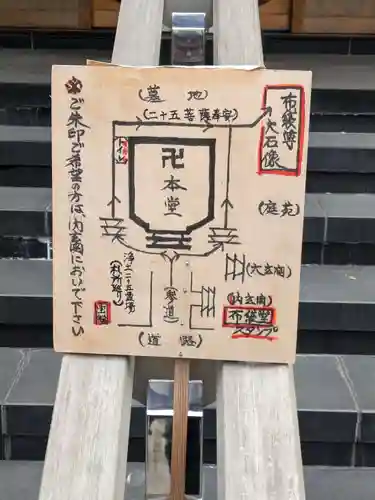 ご朱印ご希望の方は、内玄関においで下さい
(墓地)
(二十五菩薩奉安)
布袋尊
大石像
卍
本堂
(庭苑)
(大玄関)
(内玄関)
布袋堂
スタンプ
浄土二十五霊場
(札所巡り)
(参道)
(道路)